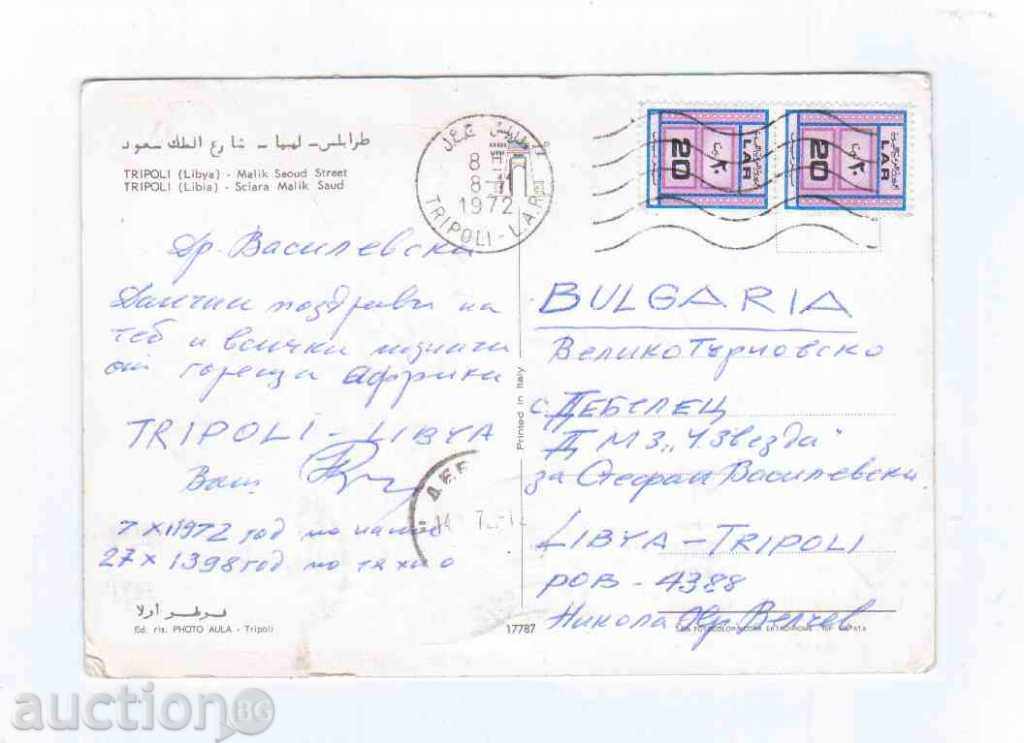 طرابلس - ليبيا - شارع الملك سعود
TRIPOLI (Libya) - Malik Seoud Street
TRIPOLI (Libia) - Sciara Malik Saud
8
8-
1972
TRIPOLI - L.A.R.
20 LAR ٢٠
20 LAR ٢٠
Др. Василевски
Далечни поздрави на
теб и всички познати
от гореща Африка
TRIPOLI - LIBYA
Ваш
7 XI 1972 год по наше
27 X 1398 год по тяхно
فوطو أولا
Ed. ris. PHOTO AULA - Tripoli
17787
Printed in Italy
ДЕБ
14
BULGARIA
ВеликоТърновско
с. ДЕБЕЛЕЦ
ДМЗ „Ч. Звезда"
за Стефан Василевски
LIBYA - TRIPOLI
POB - 4388
Никола Велчев
auction BG